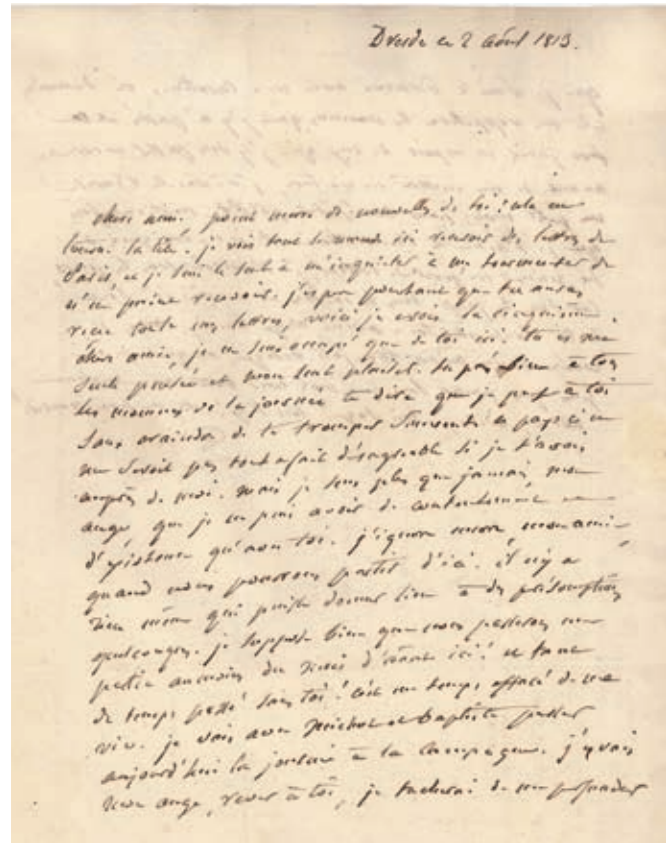 Dresde ce 2 août 1813.
chère amie, point encore de nouvelles de toi! cela me
tourne la tête. je vois tout le monde ici recevoir des lettres de
Paris et je suis le seul à m'inquiéter à me tourmenter de
n'en point recevoir. j'espère pourtant que tu auras
reçu toutes mes lettres, voici je crois la cinquième.
chère amie, je ne suis occupé que de toi ici. tu es ma
seule pensée et mon seul plaisir. tu peux bien à tous
les moments de la journée te dire que je pense à toi
sans craindre de te tromper. Souvent ce pays ci
ne seroit pas tout à fait désagréable si je t'avois
auprès de moi. mais je sens plus que jamais, mon
ange, que je ne puis avoir de contentement
d'existence qu'avec toi. j'ignore encore, mon amie,
quand nous pourrons partir d'ici. il n'y a
rien même qui puisse donner lieu à des présomptions
quelconques. je suppose bien que nous passerons une
partie au moins du mois d'août ici! et tant
de temps passé sans toi! c'est un temps effacé de ma
vie. je vais avec Michot et Baptiste passer
aujourd'hui la journée à la campagne. j'y vais
mon ange, rêver à toi, je tacherai de me persuader